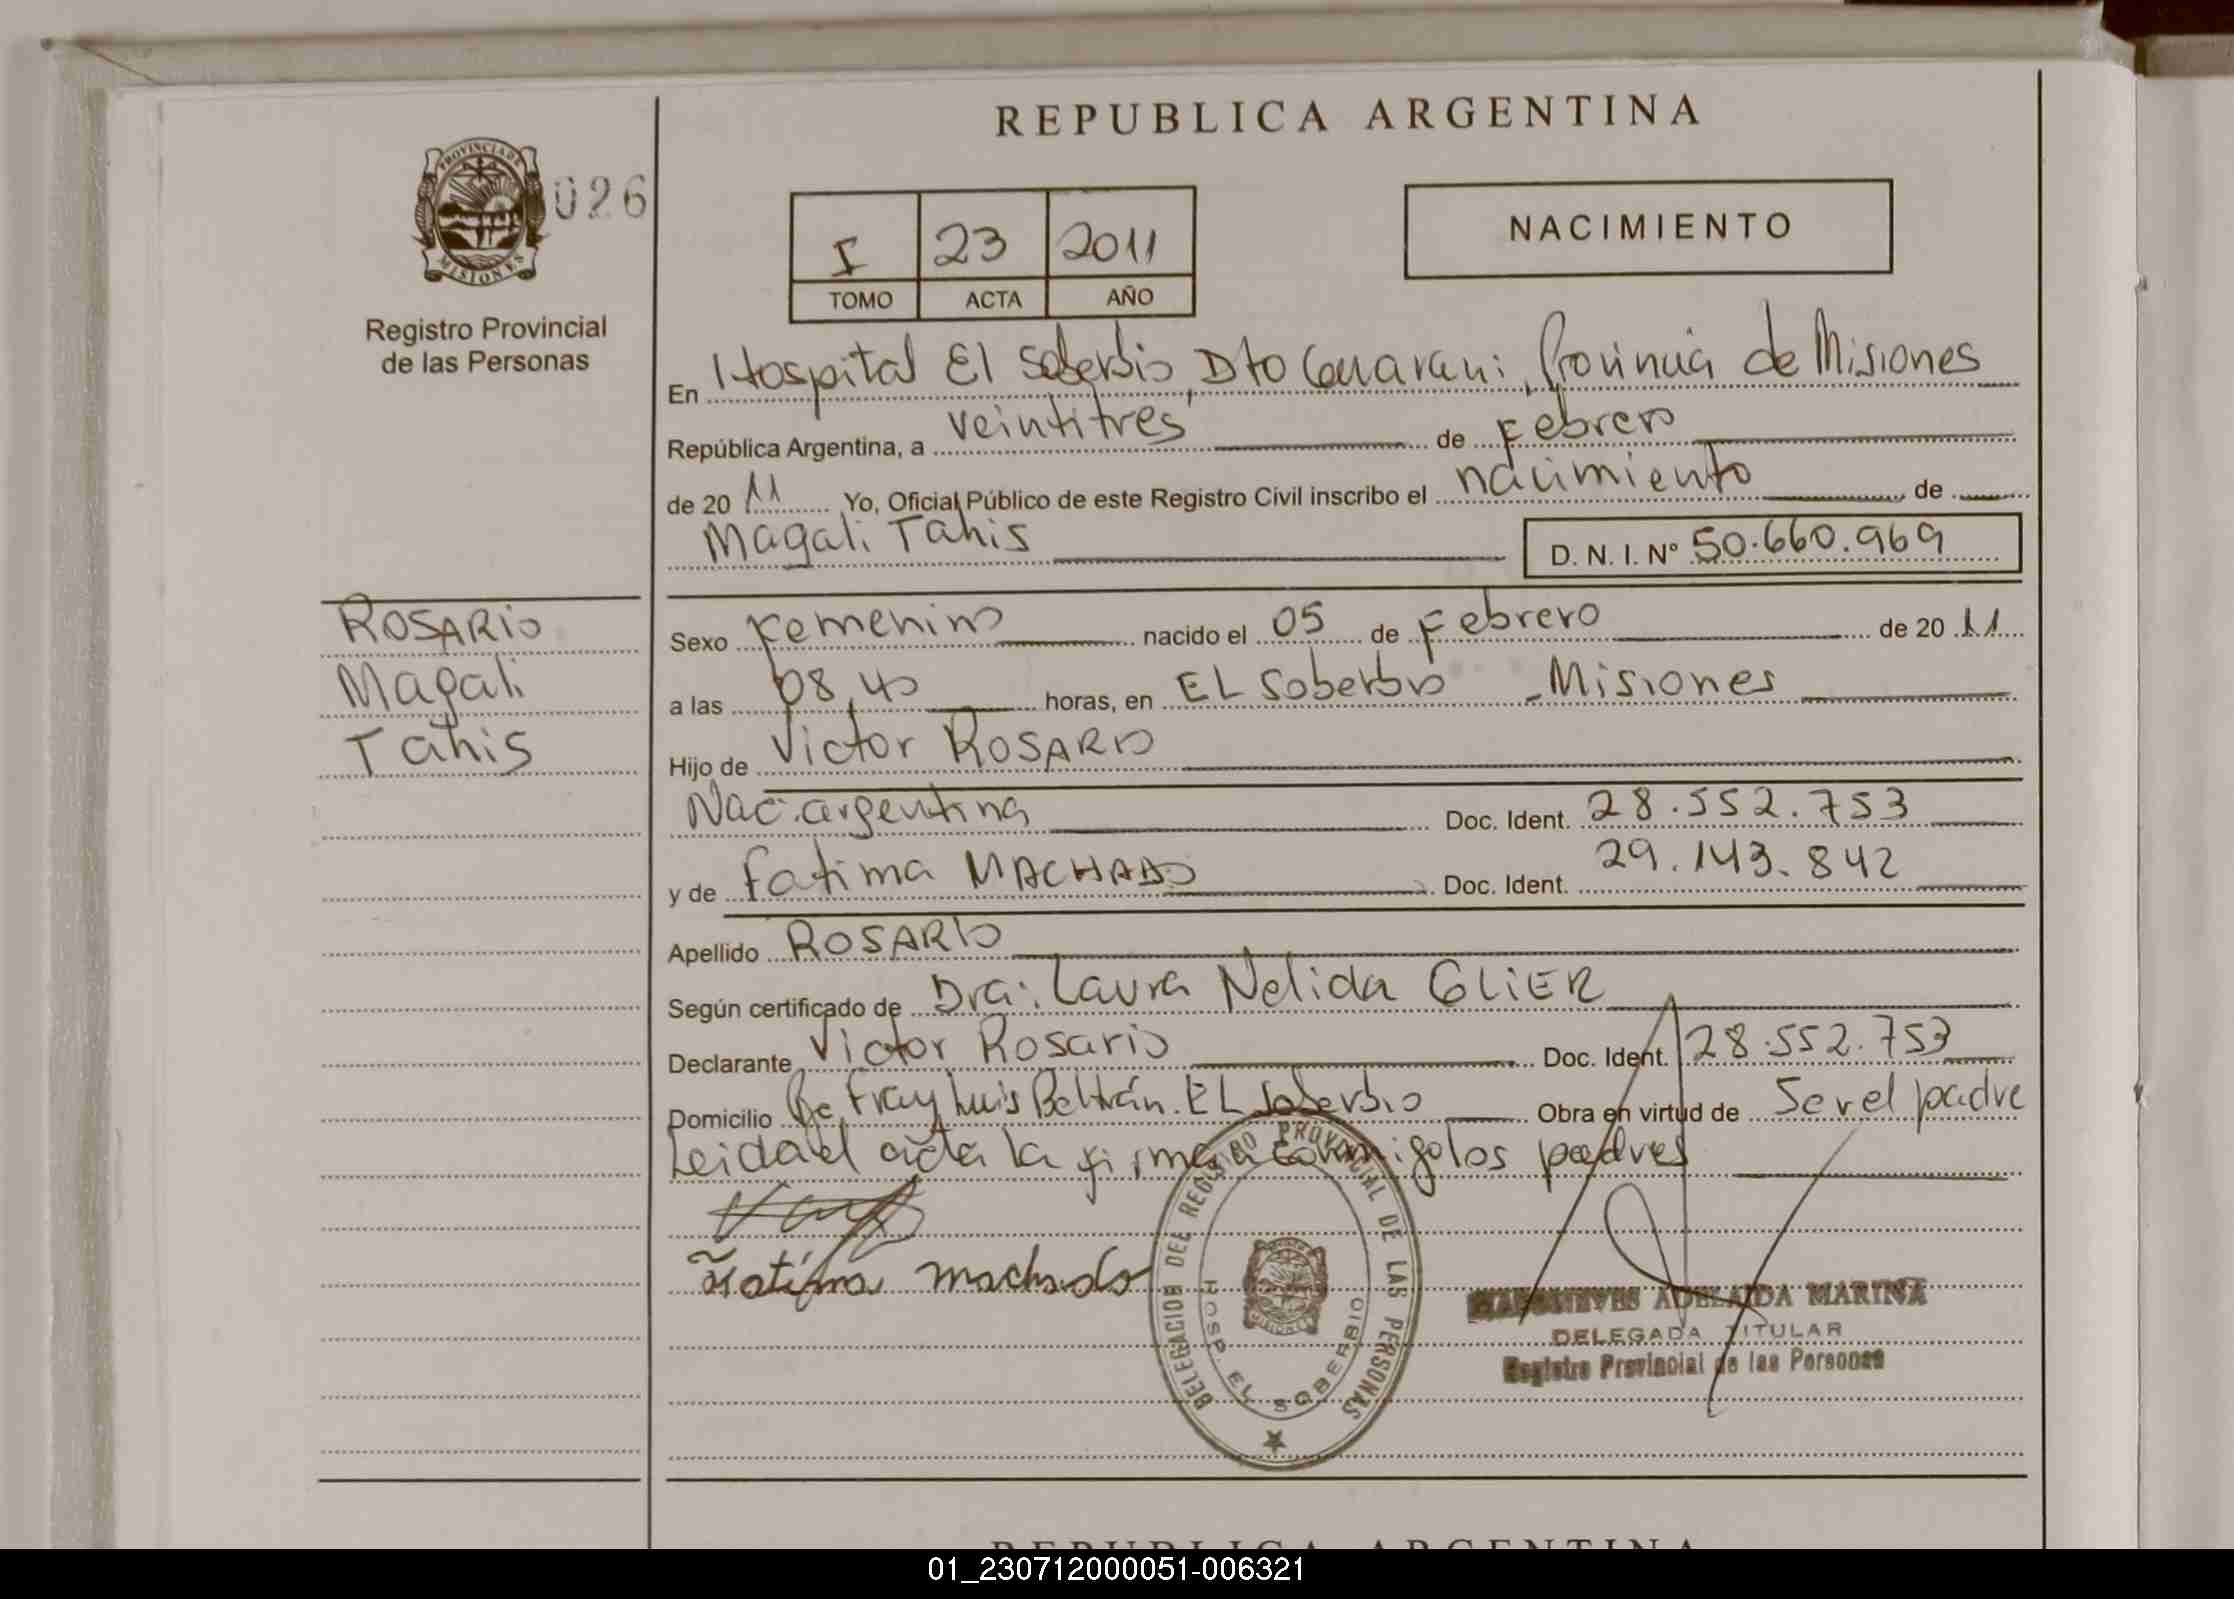 REPUBLICA ARGENTINA
PROVINCIA DE
MISIONES
026
Registro Provincial
de las Personas
I 23 2011
TOMO ACTA AÑO
NACIMIENTO
En Hospital El Soberbio, Dto Guarani, Provincia de Misiones
República Argentina, a veintitres de Febrero
de 20 11 Yo, Oficial Público de este Registro Civil inscribo el nacimiento de
Magali Tahis D. N. I. Nº 50.660.969
ROSARIO
Magali
Tahis
Sexo Femenino nacido el 05 de Febrero de 20 11
a las 08,40 horas, en EL Soberbio - Misiones
Hijo de Victor ROSARIO
Nac. argentina Doc. Ident. 28.552.753
y de Fatima MACHADO Doc. Ident. 29.143.842
Apellido ROSARIO
Según certificado de Dra: Laura Nelida GLIER
Declarante Victor Rosario Doc. Ident. 28.552.753
Domicilio Bº Fray Luis Beltrán. EL Soberbio Obra en virtud de Ser el padre
Leida el acta la firma conmigo los padres
Fatima machado
DELEGACION DEL REGISTRO PROVINCIAL DE LAS PERSONAS
HOSP. EL SOBERBIO
ADELAIDA MARINA
DELEGADA TITULAR
Registro Provincial de las Personas
REPUBLICA ARGENTINA
01_230712000051-006321